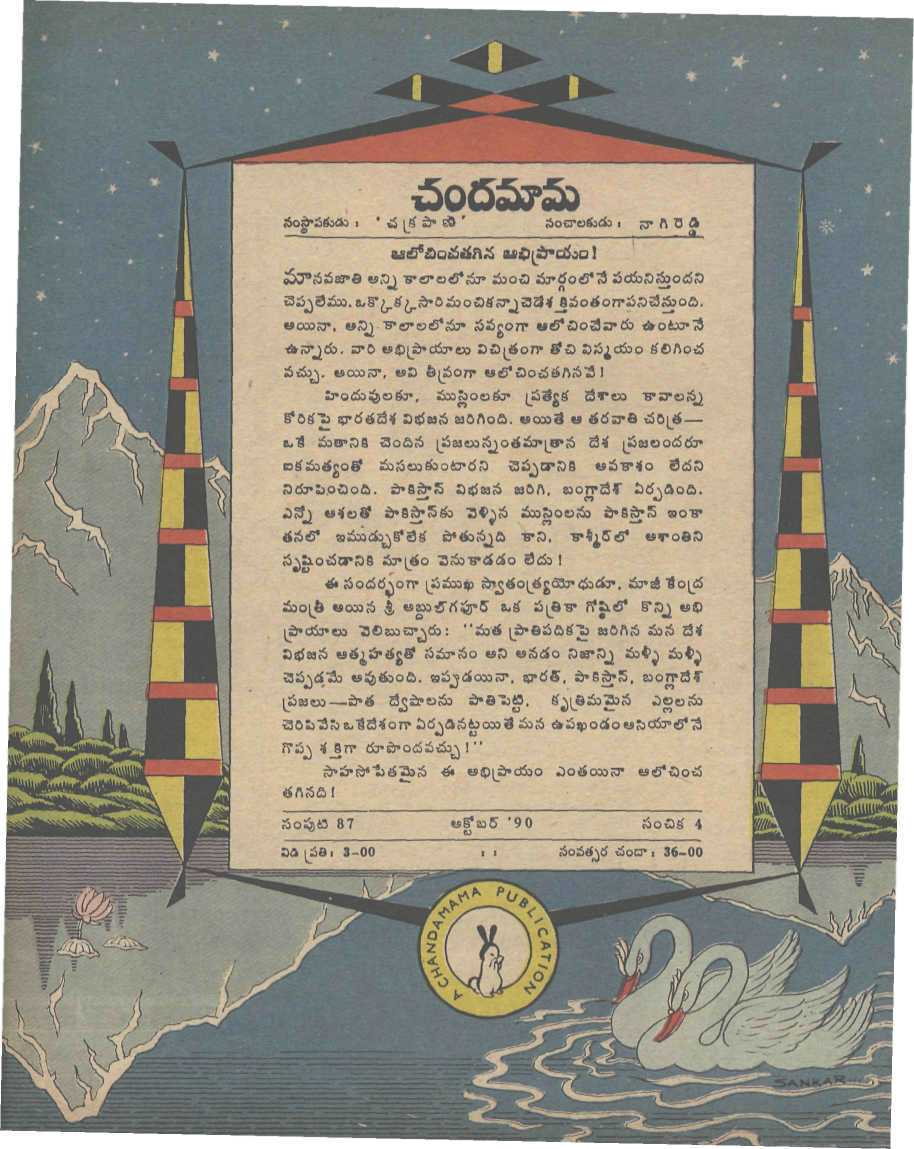 చందమామ
సంస్థాపకుడు : 'చక్రపాణి' సంచాలకుడు : నాగిరెడ్డి
ఆలోచించతగిన అభిప్రాయం!
మానవజాతి అన్ని కాలాలలోనూ మంచి మార్గంలోనే పయనిస్తుందని
చెప్పలేము. ఒక్కొక్కసారి మంచికన్నా చెడే శక్తివంతంగా పనిచేస్తుంది.
అయినా, అన్ని కాలాలలోనూ సవ్యంగా ఆలోచించేవారు ఉంటూనే
ఉన్నారు. వారి అభిప్రాయాలు విచిత్రంగా తోచి విస్మయం కలిగించ
వచ్చు. అయినా, అవి తీవ్రంగా ఆలోచించతగినవే!
హిందువులకూ, ముస్లింలకూ ప్రత్యేక దేశాలు కావాలన్న
కోరికపై భారతదేశ విభజన జరిగింది. అయితే ఆ తరవాతి చరిత్ర—
ఒకే మతానికి చెందిన ప్రజలున్నంతమాత్రాన దేశ ప్రజలందరూ
ఐకమత్యంతో మసలుకుంటారని చెప్పడానికి అవకాశం లేదని
నిరూపించింది. పాకిస్తాన్ విభజన జరిగి, బంగ్లాదేశ్ ఏర్పడింది.
ఎన్నో ఆశలతో పాకిస్తాన్‌కు వెళ్ళిన ముస్లింలను పాకిస్తాన్ ఇంకా
తనలో ఇముడ్చుకోలేక పోతున్నది కాని, కాశ్మీర్‌లో అశాంతిని
సృష్టించడానికి మాత్రం వెనుకాడడం లేదు!
ఈ సందర్భంగా ప్రముఖ స్వాతంత్ర్యయోధుడూ, మాజీ కేంద్ర
మంత్రీ అయిన శ్రీ అబ్దుల్‌గపూర్ ఒక పత్రికా గోష్ఠిలో కొన్ని అభి
ప్రాయాలు వెలిబుచ్చారు: "మత ప్రాతిపదికపై జరిగిన మన దేశ
విభజన ఆత్మహత్యతో సమానం అని అనడం నిజాన్ని మళ్ళీ మళ్ళీ
చెప్పడమే అవుతుంది. ఇప్పుడయినా, భారత్, పాకిస్తాన్, బంగ్లాదేశ్
ప్రజలు—పాత ద్వేషాలను పాతిపెట్టి, కృత్రిమమైన ఎల్లలను
చెరిపివేసి ఒకేదేశంగా ఏర్పడినట్టయితే మన ఉపఖండం ఆసియాలోనే
గొప్ప శక్తిగా రూపొందవచ్చు!"
సాహసోపేతమైన ఈ అభిప్రాయం ఎంతయినా ఆలోచించ
తగినది!
సంపుటి 87 అక్టోబర్ '90 సంచిక 4
విడి ప్రతి : 3-00 : : సంవత్సర చందా : 36-00
A CHANDAMAMA PUBLICATION
SANKAR